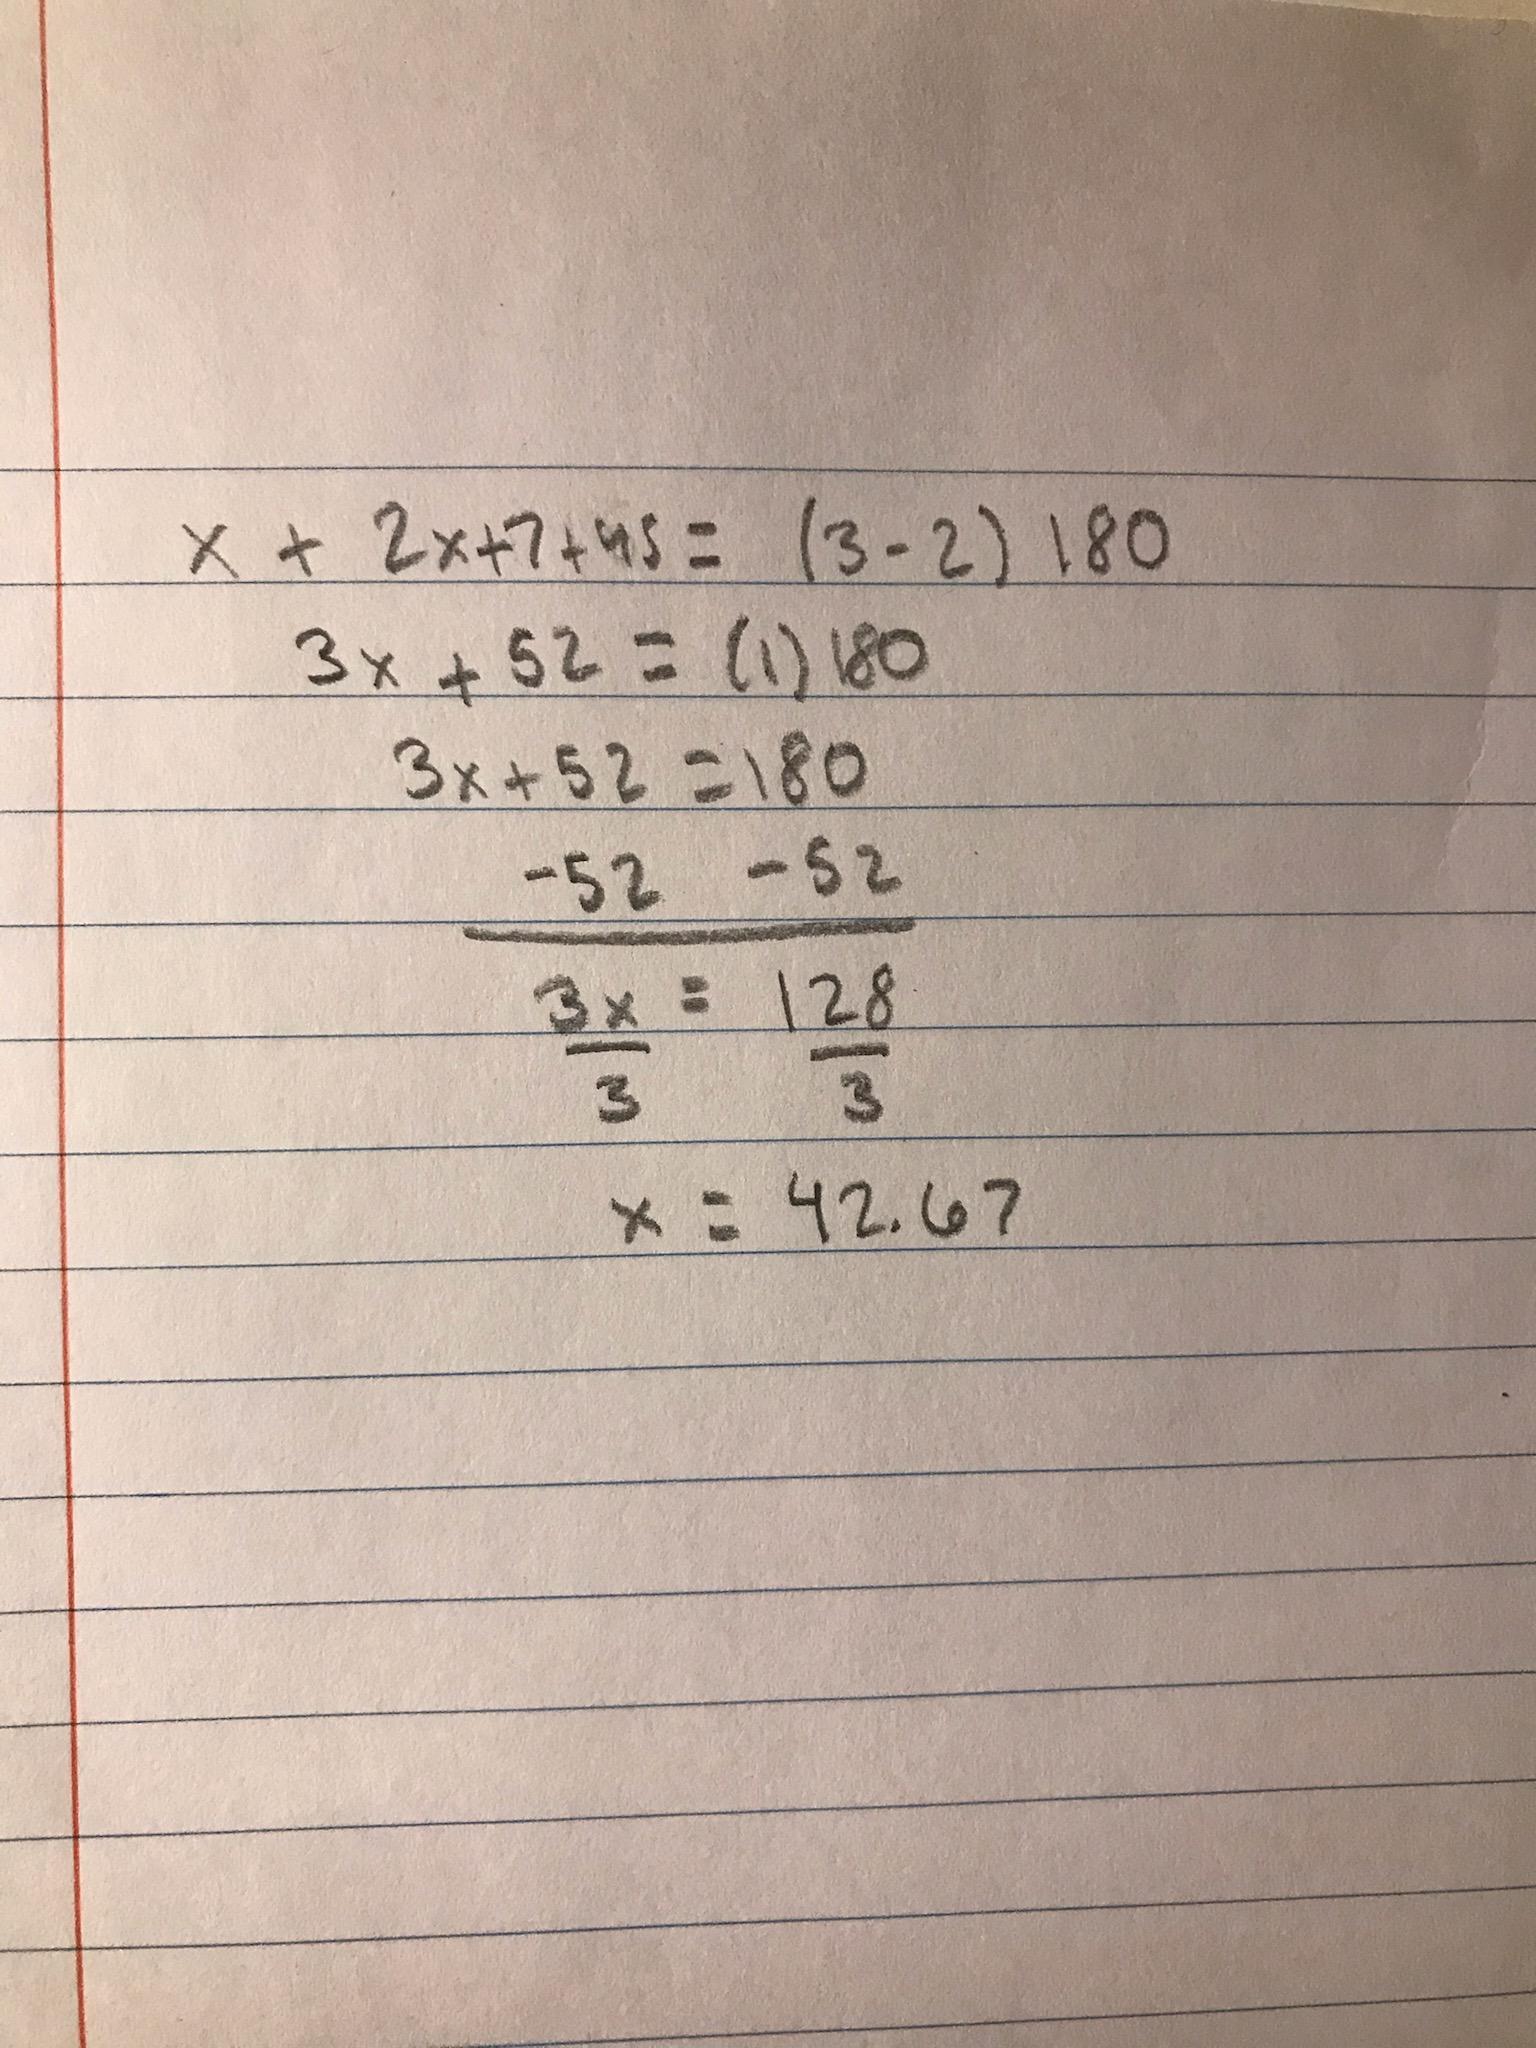 x + 2x+7+45 = (3-2) 180
3x + 52 = (1) 180
3x+52 =180
-52 -52
3x = 128
3 3
x = 42.67